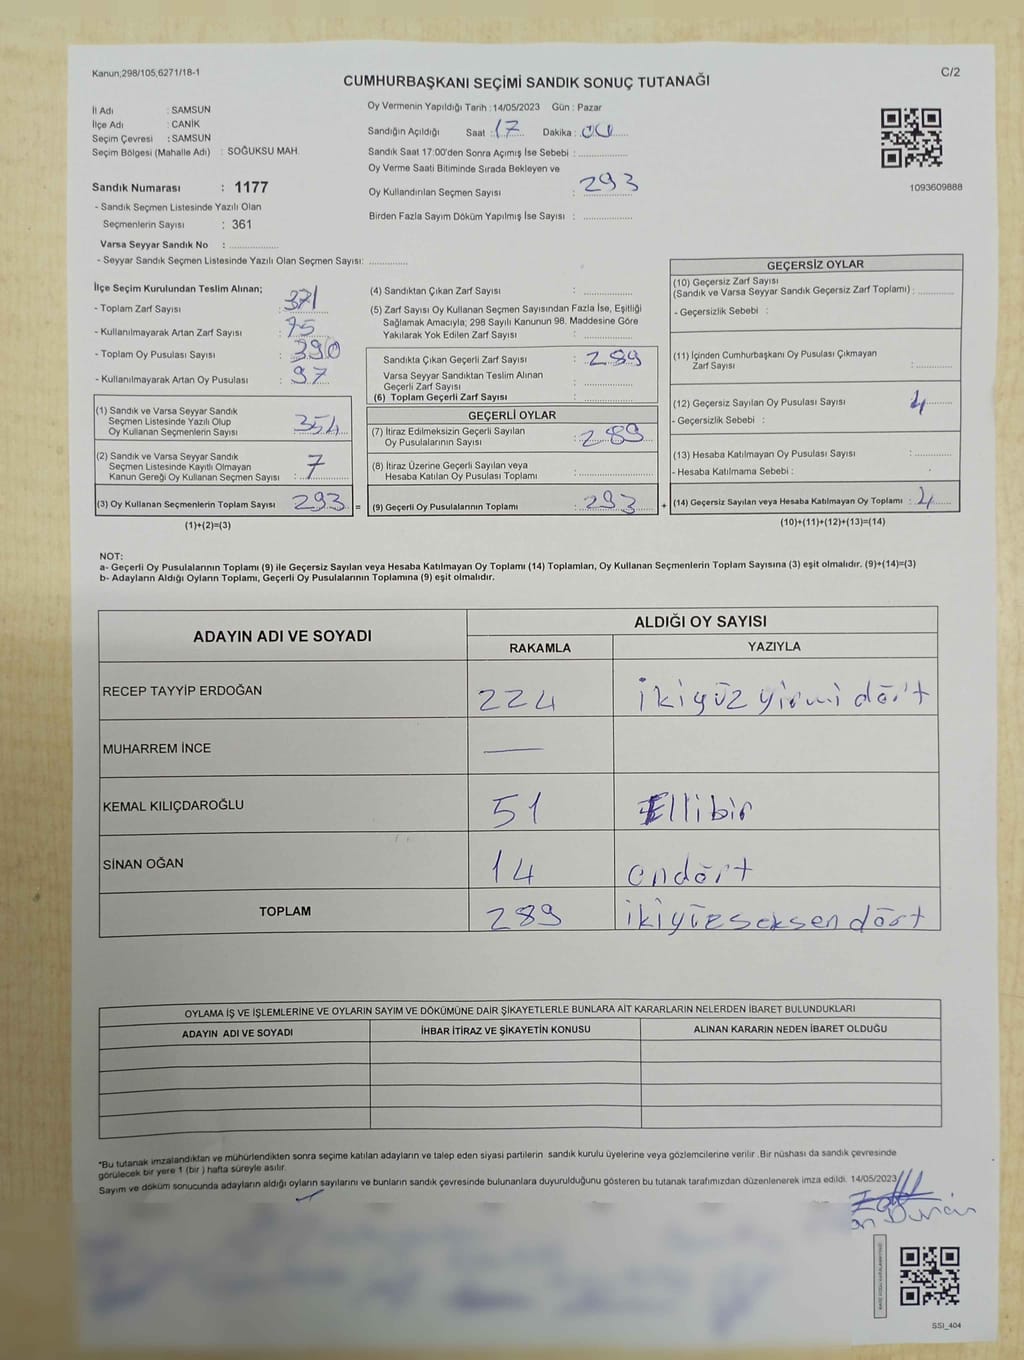 Kanun;298/105,6271/18-1
C/2
CUMHURBAŞKANI SEÇİMİ SANDIK SONUÇ TUTANAĞI
İl Adı : SAMSUN
İlçe Adı : CANİK
Seçim Çevresi : SAMSUN
Seçim Bölgesi (Mahalle Adı) : SOĞUKSU MAH.
Sandık Numarası : 1177
- Sandık Seçmen Listesinde Yazılı Olan
Seçmenlerin Sayısı : 361
Varsa Seyyar Sandık No : ..............
- Seyyar Sandık Seçmen Listesinde Yazılı Olan Seçmen Sayısı: ...........
Oy Vermenin Yapıldığı Tarih :14/05/2023 Gün : Pazar
Sandığın Açıldığı Saat : 17 Dakika : 00
Sandık Saat 17:00'den Sonra Açımış İse Sebebi : ..............
Oy Verme Saati Bitiminde Sırada Bekleyen ve
Oy Kullandırılan Seçmen Sayısı : 293
Birden Fazla Sayım Döküm Yapılmış İse Sayısı : ..............
1093609888
İlçe Seçim Kurulundan Teslim Alınan;
- Toplam Zarf Sayısı : 371
- Kullanılmayarak Artan Zarf Sayısı : 75
- Toplam Oy Pusulası Sayısı : 390
- Kullanılmayarak Artan Oy Pusulası : 97
(1) Sandık ve Varsa Seyyar Sandık
Seçmen Listesinde Yazılı Olup
Oy Kullanan Seçmenlerin Sayısı 354
(2) Sandık ve Varsa Seyyar Sandık
Seçmen Listesinde Kayıtlı Olmayan
Kanun Gereği Oy Kullanan Seçmen Sayısı : 7
(3) Oy Kullanan Seçmenlerin Toplam Sayısı 293 =
(1)+(2)=(3)
(4) Sandıktan Çıkan Zarf Sayısı : ..............
(5) Zarf Sayısı Oy Kullanan Seçmen Sayısından Fazla İse, Eşitliği
Sağlamak Amacıyla; 298 Sayılı Kanunun 98. Maddesine Göre
Yakılarak Yok Edilen Zarf Sayısı : ..............
Sandıkta Çıkan Geçerli Zarf Sayısı : 289
Varsa Seyyar Sandıktan Teslim Alınan
Geçerli Zarf Sayısı : ..............
(6) Toplam Geçerli Zarf Sayısı : ..............
GEÇERLİ OYLAR
(7) İtiraz Edilmeksizin Geçerli Sayılan
Oy Pusulalarının Sayısı : 289
(8) İtiraz Üzerine Geçerli Sayılan veya
Hesaba Katılan Oy Pusulası Toplamı : ..............
(9) Geçerli Oy Pusulalarının Toplamı : 293 +
GEÇERSİZ OYLAR
(10) Geçersiz Zarf Sayısı
(Sandık ve Varsa Seyyar Sandık Geçersiz Zarf Toplamı) : ..........
- Geçersizlik Sebebi :
(11) İçinden Cumhurbaşkanı Oy Pusulası Çıkmayan
Zarf Sayısı : ..........
(12) Geçersiz Sayılan Oy Pusulası Sayısı : 4
- Geçersizlik Sebebi :
(13) Hesaba Katılmayan Oy Pusulası Sayısı : ..........
- Hesaba Katılmama Sebebi :
(14) Geçersiz Sayılan veya Hesaba Katılmayan Oy Toplamı : 4
(10)+(11)+(12)+(13)=(14)
NOT:
a- Geçerli Oy Pusulalarının Toplamı (9) ile Geçersiz Sayılan veya Hesaba Katılmayan Oy Toplamı (14) Toplamları, Oy Kullanan Seçmenlerin Toplam Sayısına (3) eşit olmalıdır. (9)+(14)=(3)
b- Adayların Aldığı Oyların Toplamı, Geçerli Oy Pusulalarının Toplamına (9) eşit olmalıdır.
ADAYIN ADI VE SOYADI
ALDIĞI OY SAYISI
RAKAMLA YAZIYLA
RECEP TAYYİP ERDOĞAN 224 ikiyüz yirmi dört
MUHARREM İNCE —
KEMAL KILIÇDAROĞLU 51 Ellibir
SİNAN OĞAN 14 ondört
TOPLAM 289 ikiyüzseksen dört
OYLAMA İŞ VE İŞLEMLERİNE VE OYLARIN SAYIM VE DÖKÜMÜNE DAİR ŞİKAYETLERLE BUNLARA AİT KARARLARIN NELERDEN İBARET BULUNDUKLARI
ADAYIN ADI VE SOYADI İHBAR İTİRAZ VE ŞİKAYETİN KONUSU ALINAN KARARIN NEDEN İBARET OLDUĞU
*Bu tutanak imzalandıktan ve mühürlendikten sonra seçime katılan adayların ve talep eden siyasi partilerin sandık kurulu üyelerine veya gözlemcilerine verilir .Bir nüshası da sandık çevresinde
görülecek bir yere 1 (bir ) hafta süreyle asılır.
Sayım ve döküm sonucunda adayların aldığı oyların sayılarını ve bunların sandık çevresinde bulunanlara duyurulduğunu gösteren bu tutanak tarafımızdan düzenlenerek imza edildi. 14/05/2023
SSI_404